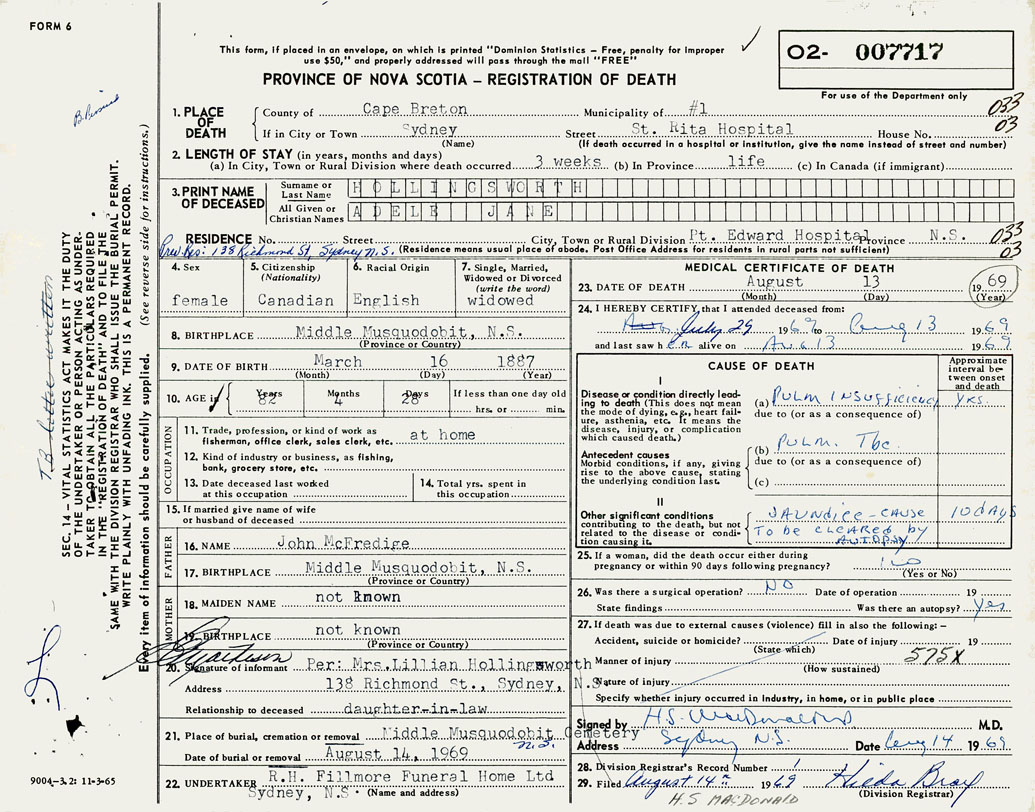 FORM 6
This form, if placed in an envelope, on which is printed "Dominion Statistics – Free, penalty for improper
use $50," and properly addressed will pass through the mail "FREE"
PROVINCE OF NOVA SCOTIA – REGISTRATION OF DEATH
02- 007717
For use of the Department only
1. PLACE OF DEATH
County of Cape Breton Municipality of #1
033
03
If in City or Town Sydney Street St. Rita Hospital House No.
(Name) (If death occurred in a hospital or institution, give the name instead of street and number)
2. LENGTH OF STAY (in years, months and days)
(a) In City, Town or Rural Division where death occurred 3 weeks (b) In Province life (c) In Canada (if immigrant)
3. PRINT NAME OF DECEASED
Surname or Last Name HOLLINGSWORTH
All Given or Christian Names ADELE JANE
RESIDENCE No. Street City, Town or Rural Division Pt. Edward Hospital Province N.S.
033
03
Prev Res: 138 Richmond St, Sydney N.S. (Residence means usual place of abode. Post Office Address for residents in rural parts not sufficient)
4. Sex female
5. Citizenship (Nationality) Canadian
6. Racial Origin English
7. Single, Married, Widowed or Divorced (write the word) widowed
8. BIRTHPLACE Middle Musquodobit, N.S.
(Province or Country)
9. DATE OF BIRTH March 16 1887
(Month) (Day) (Year)
10. AGE in Years 82 Months 4 Days 28 If less than one day old
hrs. or min.
OCCUPATION
11. Trade, profession, or kind of work as fisherman, office clerk, sales clerk, etc. at home
12. Kind of industry or business, as fishing, bank, grocery store, etc.
13. Date deceased last worked at this occupation
14. Total yrs. spent in this occupation
15. If married give name of wife or husband of deceased
FATHER
16. NAME John McFredige
17. BIRTHPLACE Middle Musquodobit, N.S.
(Province or Country)
MOTHER
18. MAIDEN NAME not known
19. BIRTHPLACE not known
(Province or Country)
20. Signature of informant Per: Mrs. Lillian Hollingsworth
Address 138 Richmond St., Sydney, N.S.
Relationship to deceased daughter-in-law
21. Place of burial, cremation or removal Middle Musquodobit Cemetery
N.S.
Date of burial or removal August 14, 1969
22. UNDERTAKER R.H. Fillmore Funeral Home Ltd
Sydney, N.S. (Name and address)
MEDICAL CERTIFICATE OF DEATH
23. DATE OF DEATH August 13 1969
(Month) (Day) (Year)
24. I HEREBY CERTIFY, that I attended deceased from:
July 29 1969 to Aug 13 1969
and last saw her alive on Aug 13 1969
CAUSE OF DEATH
Approximate interval between onset and death
I
Disease or condition directly leading to death (This does not mean the mode of dying, e.g., heart failure, asthenia, etc. It means the disease, injury, or complication which caused death.)
(a) PULM INSUFFICIENCY YRS.
due to (or as a consequence of)
Antecedent causes
Morbid conditions, if any, giving rise to the above cause, stating the underlying condition last.
(b) PULM. Tbc.
due to (or as a consequence of)
(c)
II
Other significant conditions contributing to the death, but not related to the disease or condition causing it.
JAUNDICE - CAUSE 10 days
TO BE CLEARED BY
AUTOPSY
25. If a woman, did the death occur either during pregnancy or within 90 days following pregnancy? no
(Yes or No)
26. Was there a surgical operation? NO Date of operation 19
State findings Was there an autopsy? Yes
27. If death was due to external causes (violence) fill in also the following:–
Accident, suicide or homicide? Date of injury 19
(State which)
Manner of injury 575X
(How sustained)
Nature of injury
Specify whether injury occurred in industry, in home, or in public place
Signed by H.S. MacDonald M.D.
Address Sydney N.S. Date Aug 14 1969
28. Division Registrar's Record Number 1
29. Filed August 14th 1969
(Division Registrar)
H.S MACDONALD
SEC. 14 – VITAL STATISTICS ACT MAKES IT THE DUTY
OF THE UNDERTAKER OR PERSON ACTING AS UNDER-
TAKER TO OBTAIN ALL THE PARTICULARS REQUIRED
IN THE "REGISTRATION OF DEATH" AND TO FILE THE
SAME WITH THE DIVISION REGISTRAR WHO SHALL ISSUE THE BURIAL PERMIT.
WRITE PLAINLY WITH UNFADING INK. THIS IS A PERMANENT RECORD.
Every item of information should be carefully supplied. (See reverse side for instructions.)
TB letter written
9004-3.2: 11-3-65